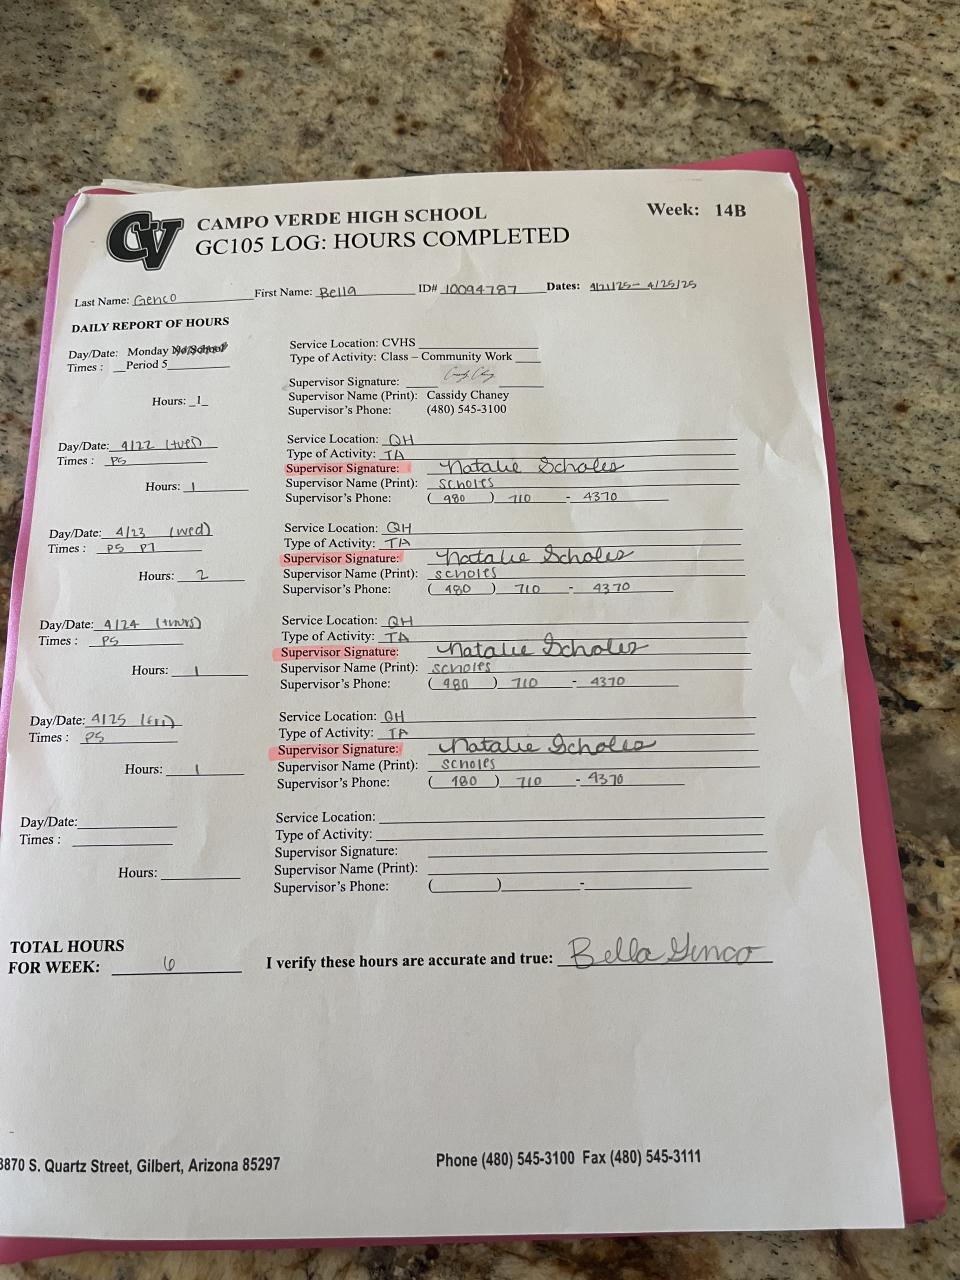 CV
CAMPO VERDE HIGH SCHOOL
Week: 14B
GC105 LOG: HOURS COMPLETED
Last Name: Genco First Name: Bella ID# 10094787 Dates: 4/21/25 - 4/25/25
DAILY REPORT OF HOURS
Day/Date: Monday No School
Times : Period 5
Hours: 1
Service Location: CVHS
Type of Activity: Class – Community Work
Supervisor Signature:
Supervisor Name (Print): Cassidy Chaney
Supervisor's Phone: (480) 545-3100
Day/Date: 4/22 (tues)
Times : P5
Hours: 1
Service Location: QH
Type of Activity: TA
Supervisor Signature: Natalie Scholes
Supervisor Name (Print): scholes
Supervisor's Phone: (480) 710 - 4370
Day/Date: 4/23 (wed)
Times : P5 P7
Hours: 2
Service Location: QH
Type of Activity: TA
Supervisor Signature: Natalie Scholes
Supervisor Name (Print): scholes
Supervisor's Phone: (480) 710 - 4370
Day/Date: 4/24 (thurs)
Times : P5
Hours: 1
Service Location: QH
Type of Activity: TA
Supervisor Signature: Natalie Scholes
Supervisor Name (Print): scholes
Supervisor's Phone: (480) 710 - 4370
Day/Date: 4/25 (fri)
Times : P5
Hours: 1
Service Location: QH
Type of Activity: TA
Supervisor Signature: Natalie Scholes
Supervisor Name (Print): scholes
Supervisor's Phone: (480) 710 - 4370
Day/Date:
Times :
Hours:
Service Location:
Type of Activity:
Supervisor Signature:
Supervisor Name (Print):
Supervisor's Phone: ( ) -
TOTAL HOURS
FOR WEEK: 6
I verify these hours are accurate and true: Bella Genco
3870 S. Quartz Street, Gilbert, Arizona 85297
Phone (480) 545-3100 Fax (480) 545-3111